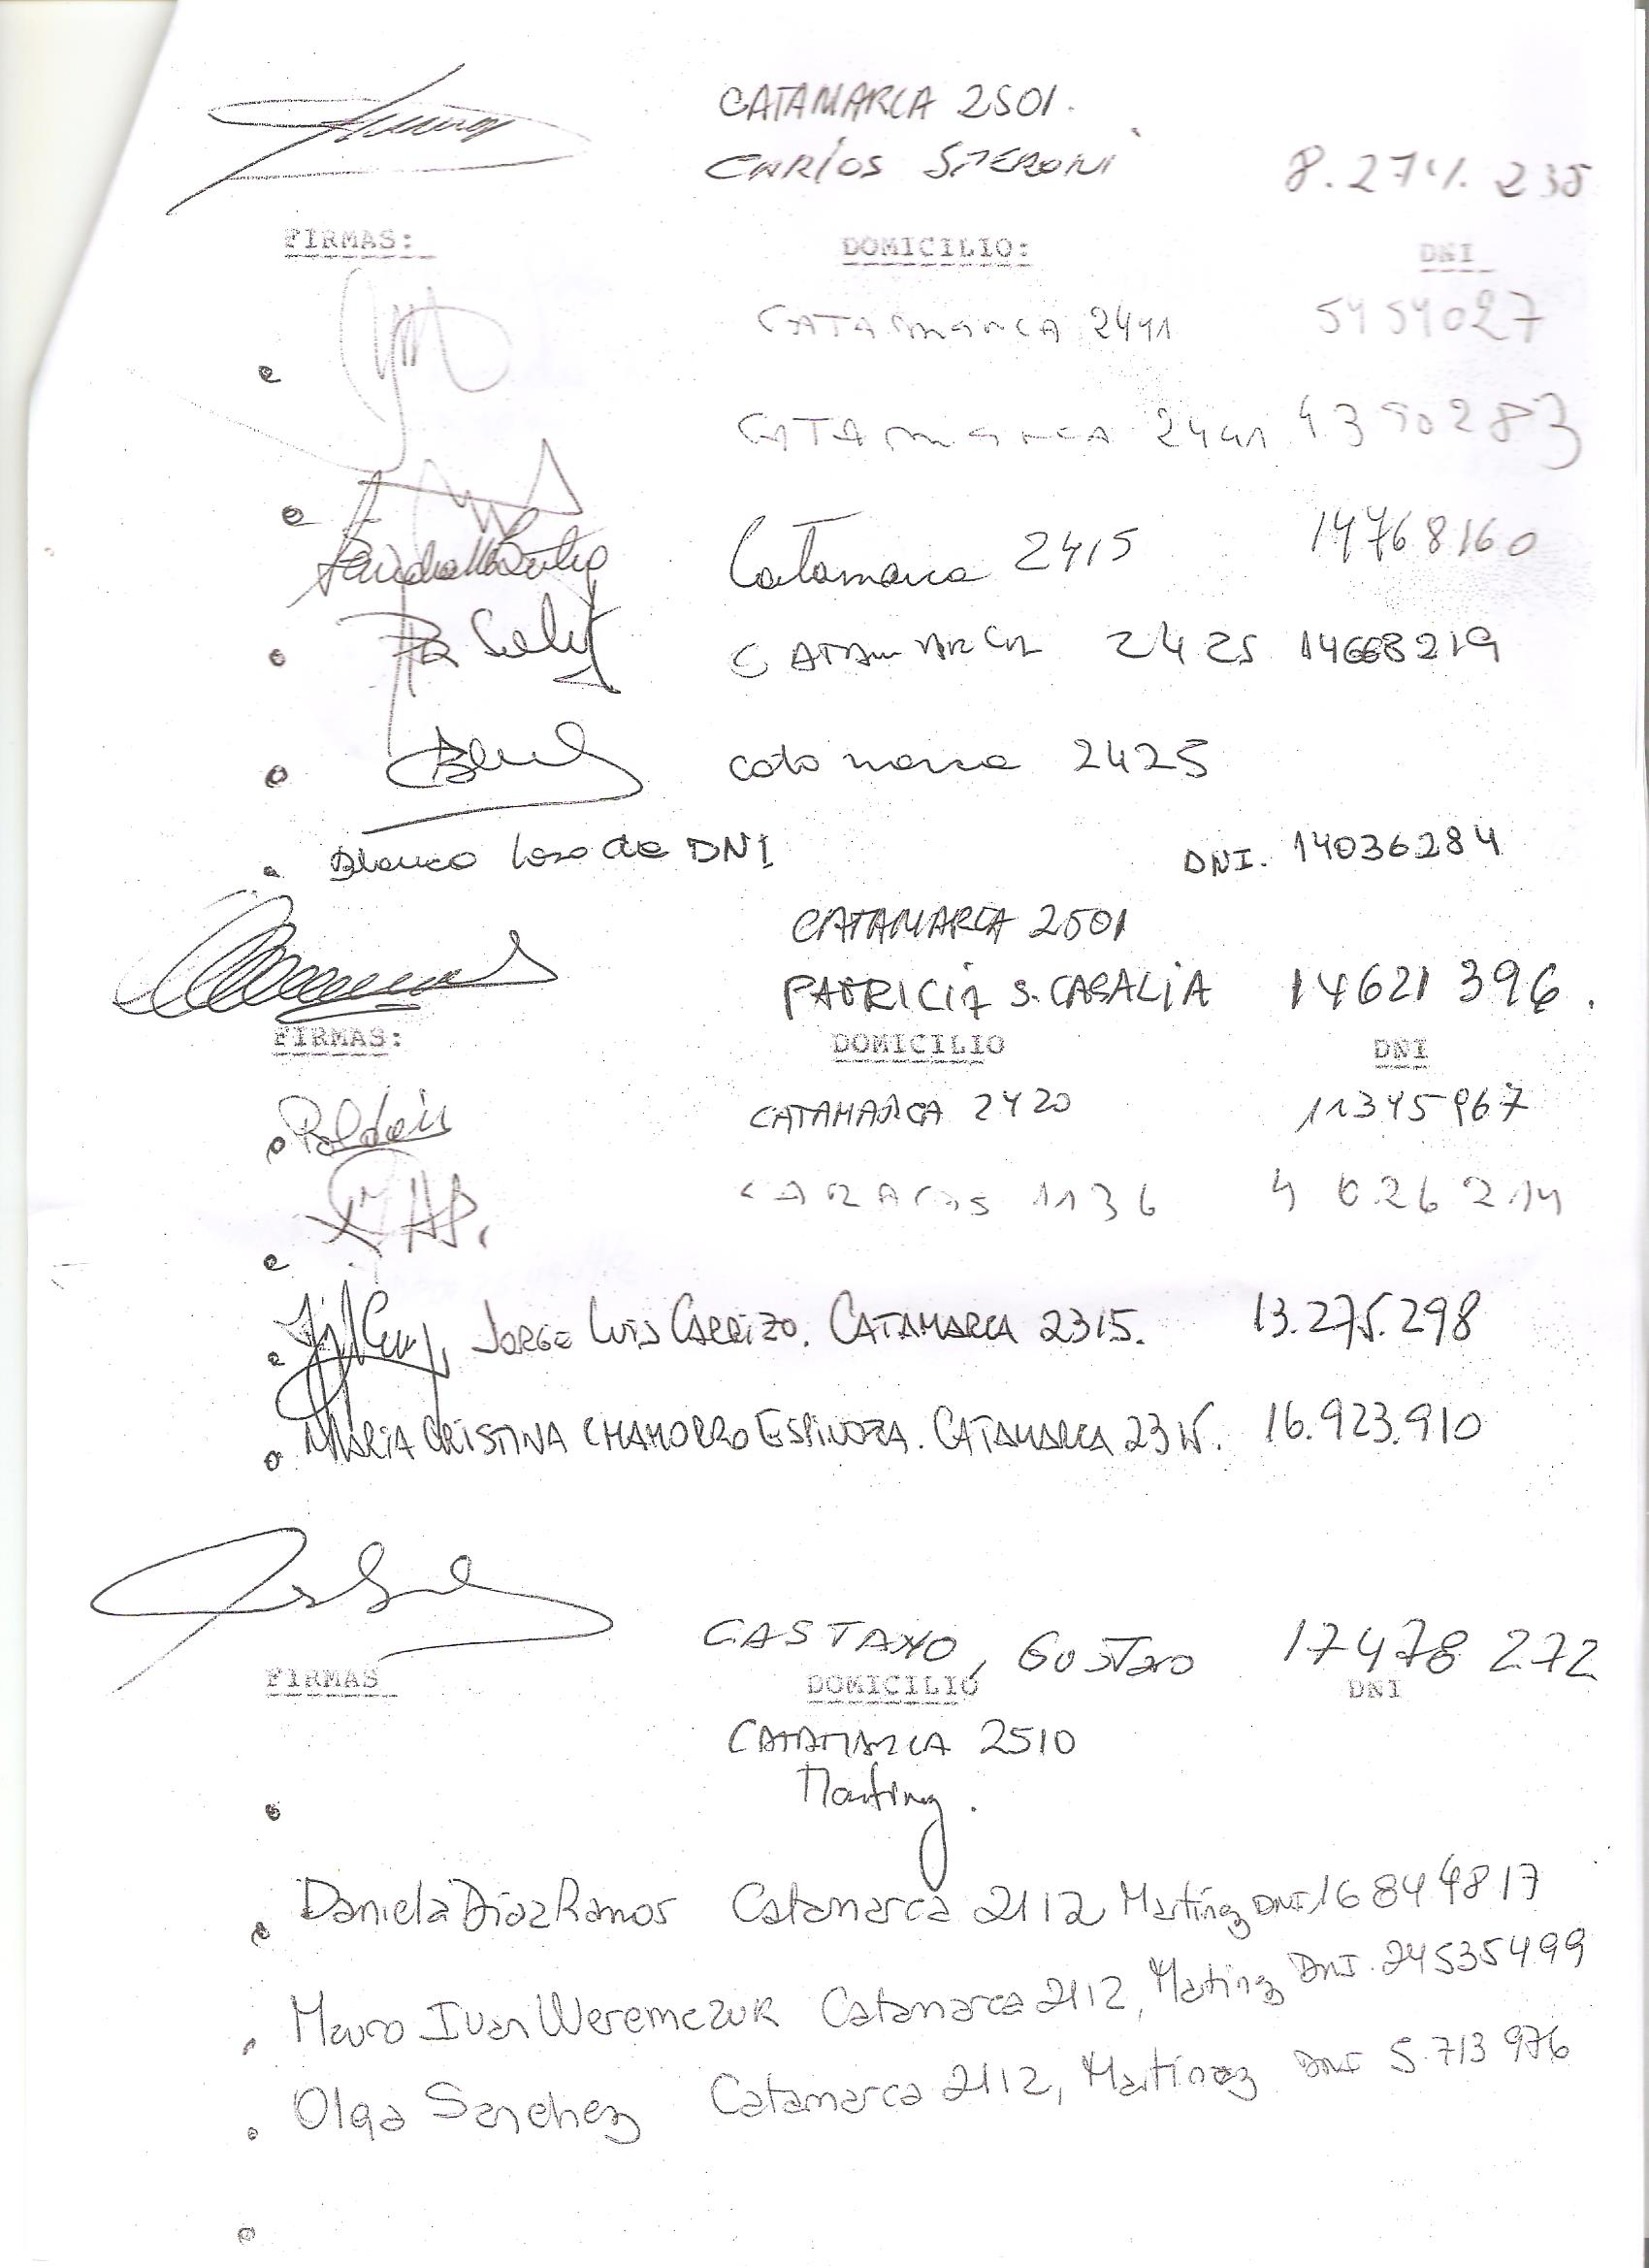 CATAMARCA 2501.
CARLOS 8.274.235
FIRMAS: DOMICILIO: DNI
CATAMARCA 2441 5454027
CATAMARCA 2441 4390283
Catamarca 2415 14768160
CATAMARCA 2425 14668219
catamarca 2425
DNI DNI. 14036284
CATAMARCA 2501
PATRICIA S. CASALIA 14621396.
FIRMAS: DOMICILIO DNI
Roldán CATAMARCA 2420 11345967
CARACAS 1136 4026214
JORGE LUIS CARRIZO. CATAMARCA 2315. 13.275.298
MARIA CRISTINA CHAMORRO ESPINOZA. CATAMARCA 2315. 16.923.910
CASTAÑO, GUSTAVO 17478272
FIRMAS DOMICILIO DNI
CATAMARCA 2510
Martinez.
Daniela Diaz Ramos Catamarca 2112 Martínez DNI 16844817
Mauro Ivan Weremczuk Catamarca 2112, Martinez DNI. 24535499
Olga Sanchez Catamarca 2112, Martínez DNI 5.713976